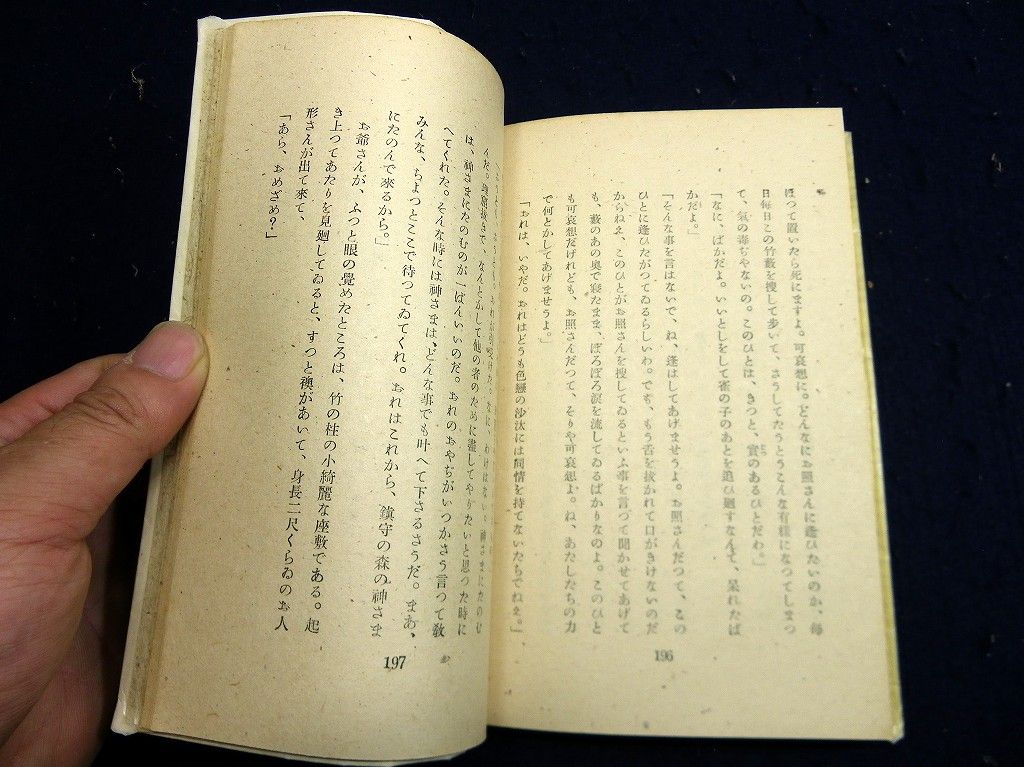 ほつて置いたら死にますよ。可哀想に。どんなにお照さんに逢ひたいのか、毎
日毎日この竹藪を捜して歩いて、さうしてたうとうこんな有様になつてしまつ
て、氣の毒ぢやないの。このひとは、きつと、實のあるひとだわ。」
「なに、ばかだよ。いいとしをして雀の子のあとを追ひ廻すなんて、呆れたば
かだよ。」
「そんな事を言はないで、ね、逢はしてあげませうよ。お照さんだつて、この
ひとに逢ひたがつてゐるらしいわ。でも、もう舌を拔かれて口がきけないのだ
からねえ、このひとがお照さんを捜してゐるといふ事を言つて聞かせてあげて
も、藪のあの奥で寝たまま、ぽろぽろ涙を流してゐるばかりなのよ。このひと
も可哀想だけれども、お照さんだつて、そりや可哀想よ。ね、あたしたちの力
で何とかしてあげませうよ。」
「おれは、いやだ。おれはどうも色戀の沙汰には同情を持てないたちでねえ。」
196
わけはない。神さまにたのむ
んだ。理窟拔きで、なんとかして他の者のために盡してやりたいと思つた時に
は、神さまにたのむのが一ばんいいのだ。おれのおやぢがいつかさう言つて敎
へてくれた。そんな時には神さまは、どんな事でも叶へて下さるさうだ。まあ、
みんな、ちよつとここで待つてゐてくれ。おれはこれから、鎭守の森の神さま
にたのんで來るから。」
お爺さんが、ふつと眼の覺めたところは、竹の柱の小綺麗な座敷である。起
き上つてあたりを見廻してゐると、すつと襖があいて、身長二尺くらゐのお人
形さんが出て來て、
「あら、おめざめ？」
197
お